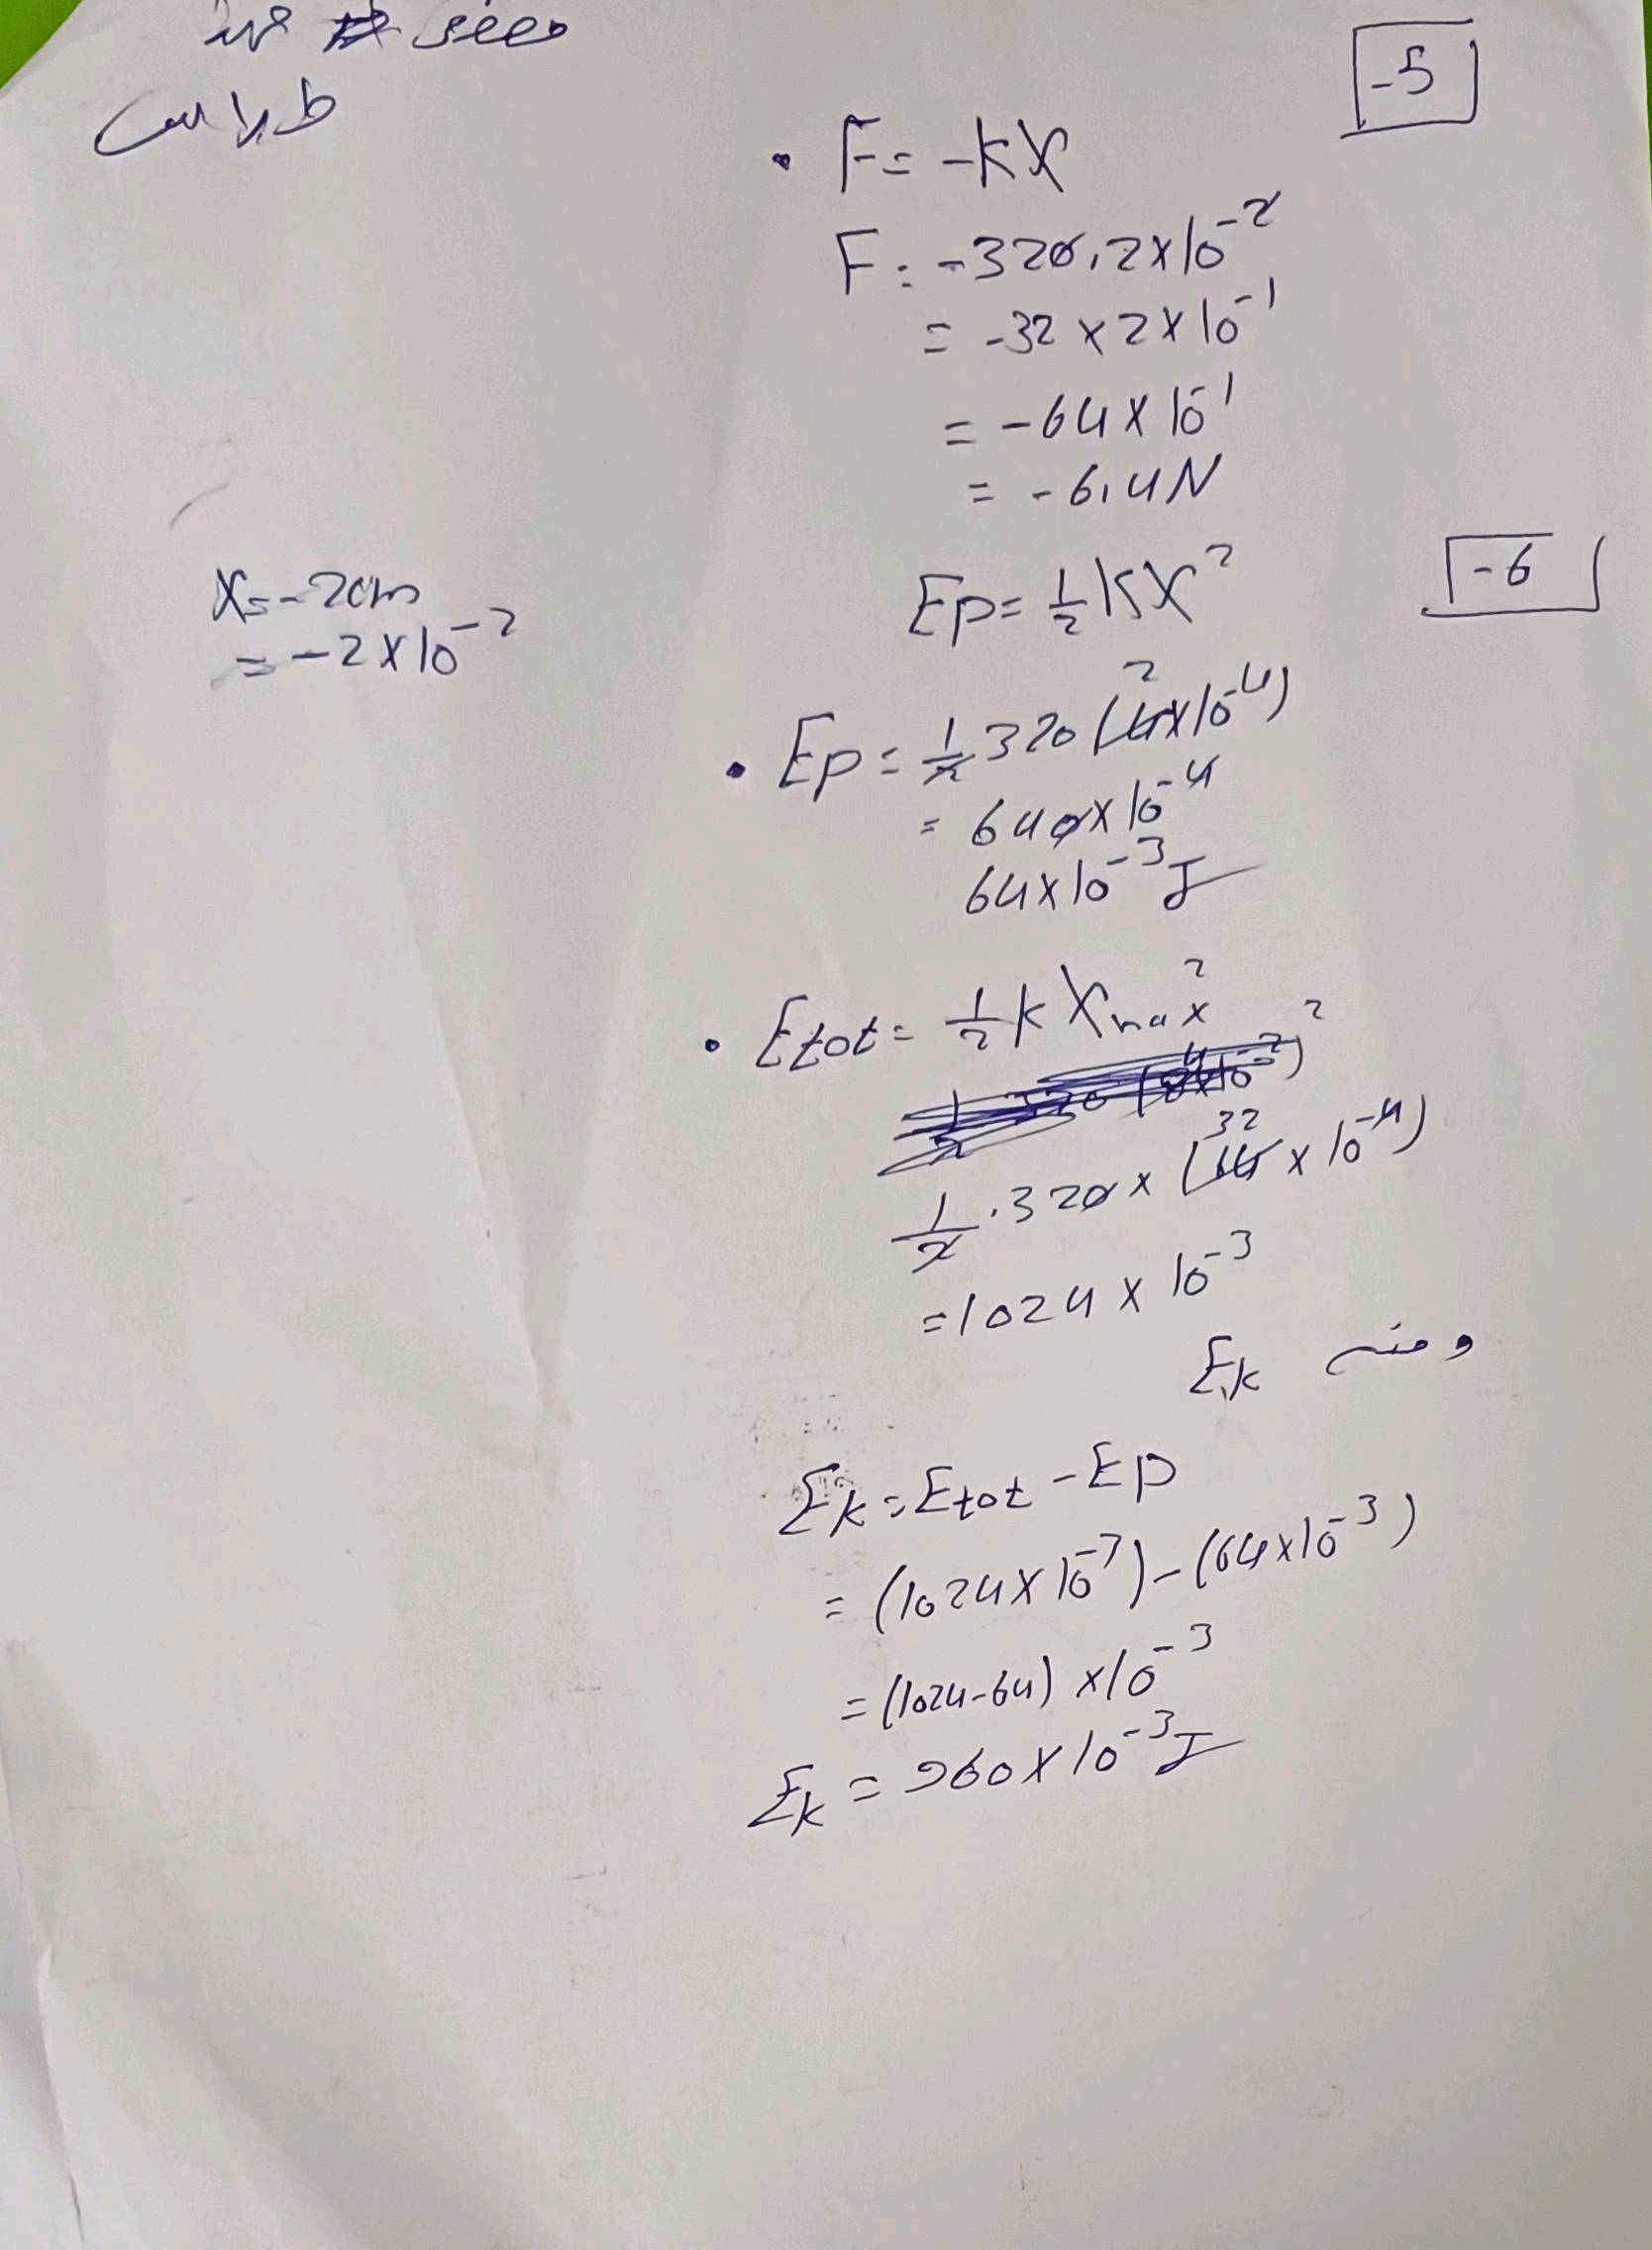 -5
F = -kX
F = -320,2×10^-2
= -32 × 2 × 10^-1
= -64 × 10^-1
= -6,4N
-6
Ep = 1/2 kX^2
X = -2cm
= -2 × 10^-2
Ep = 1/2 320 (4×10^-4)
= 640 × 10^-4
64 × 10^-3 J
Etot = 1/2 k Xmax^2
1/2 . 320 × (64 × 10^-4)
= 1024 × 10^-3
ومنه Ek
Ek = Etot - Ep
= (1024 × 10^-3) - (64×10^-3)
= (1024-64) × 10^-3
Ek = 960 × 10^-3 J